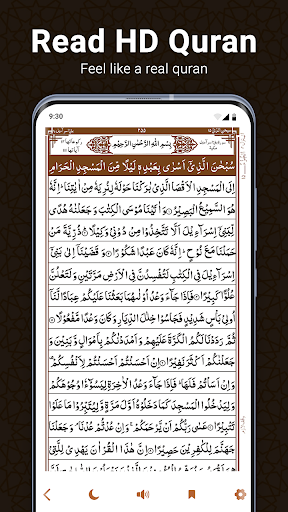 Read HD Quran
Feel like a real quran
9:30
٢٥٥
بِسْمِ اللّٰهِ الرَّحْمٰنِ الرَّحِيْمِ
سُبْحٰنَ الَّذِيْۤ اَسْرٰى بِعَبْدِهٖ لَيْلًا مِّنَ الْمَسْجِدِ الْحَرَامِ
اِلَى الْمَسْجِدِ الْاَقْصَا الَّذِيْ بٰرَكْنَا حَوْلَهٗ لِنُرِيَهٗ مِنْ اٰيٰتِنَا ؕ اِنَّهٗ
هُوَ السَّمِيْعُ الْبَصِيْرُ ۝ وَاٰتَيْنَا مُوْسَى الْكِتٰبَ وَجَعَلْنٰهُ هُدًى
لِّبَنِيْۤ اِسْرَآءِيْلَ اَلَّا تَتَّخِذُوْا مِنْ دُوْنِيْ وَكِيْلًا ۝ ذُرِّيَّةَ مَنْ
حَمَلْنَا مَعَ نُوْحٍ ؕ اِنَّهٗ كَانَ عَبْدًا شَكُوْرًا ۝ وَقَضَيْنَاۤ اِلٰى بَنِيْۤ
اِسْرَآءِيْلَ فِي الْكِتٰبِ لَتُفْسِدُنَّ فِي الْاَرْضِ مَرَّتَيْنِ وَلَتَعْلُنَّ
عُلُوًّا كَبِيْرًا ۝ فَاِذَا جَآءَ وَعْدُ اُوْلٰىهُمَا بَعَثْنَا عَلَيْكُمْ عِبَادًا لَّنَاۤ
اُولِيْ بَاْسٍ شَدِيْدٍ فَجَاسُوْا خِلٰلَ الدِّيَارِ ؕ وَكَانَ وَعْدًا مَّفْعُوْلًا ۝
ثُمَّ رَدَدْنَا لَكُمُ الْكَرَّةَ عَلَيْهِمْ وَاَمْدَدْنٰكُمْ بِاَمْوَالٍ وَّبَنِيْنَ وَ
جَعَلْنٰكُمْ اَكْثَرَ نَفِيْرًا ۝ اِنْ اَحْسَنْتُمْ اَحْسَنْتُمْ لِاَنْفُسِكُمْ ۟
وَاِنْ اَسَاْتُمْ فَلَهَا ؕ فَاِذَا جَآءَ وَعْدُ الْاٰخِرَةِ لِيَسُوْٓءٗا وُجُوْهَكُمْ
وَلِيَدْخُلُوا الْمَسْجِدَ كَمَا دَخَلُوْهُ اَوَّلَ مَرَّةٍ وَّلِيُتَبِّرُوْا مَا عَلَوْا
تَتْبِيْرًا ۝ عَسٰى رَبُّكُمْ اَنْ يَّرْحَمَكُمْ ۚ وَاِنْ عُدْتُّمْ عُدْنَا ۘ وَ
جَعَلْنَا جَهَنَّمَ لِلْكٰفِرِيْنَ حَصِيْرًا ۝ اِنَّ هٰذَا الْقُرْاٰنَ يَهْدِيْ لِلَّتِيْ